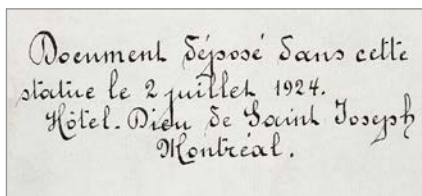 Document déposé dans cette
statue le 2 juillet 1924.
Hôtel-Dieu de Saint Joseph
Montréal.